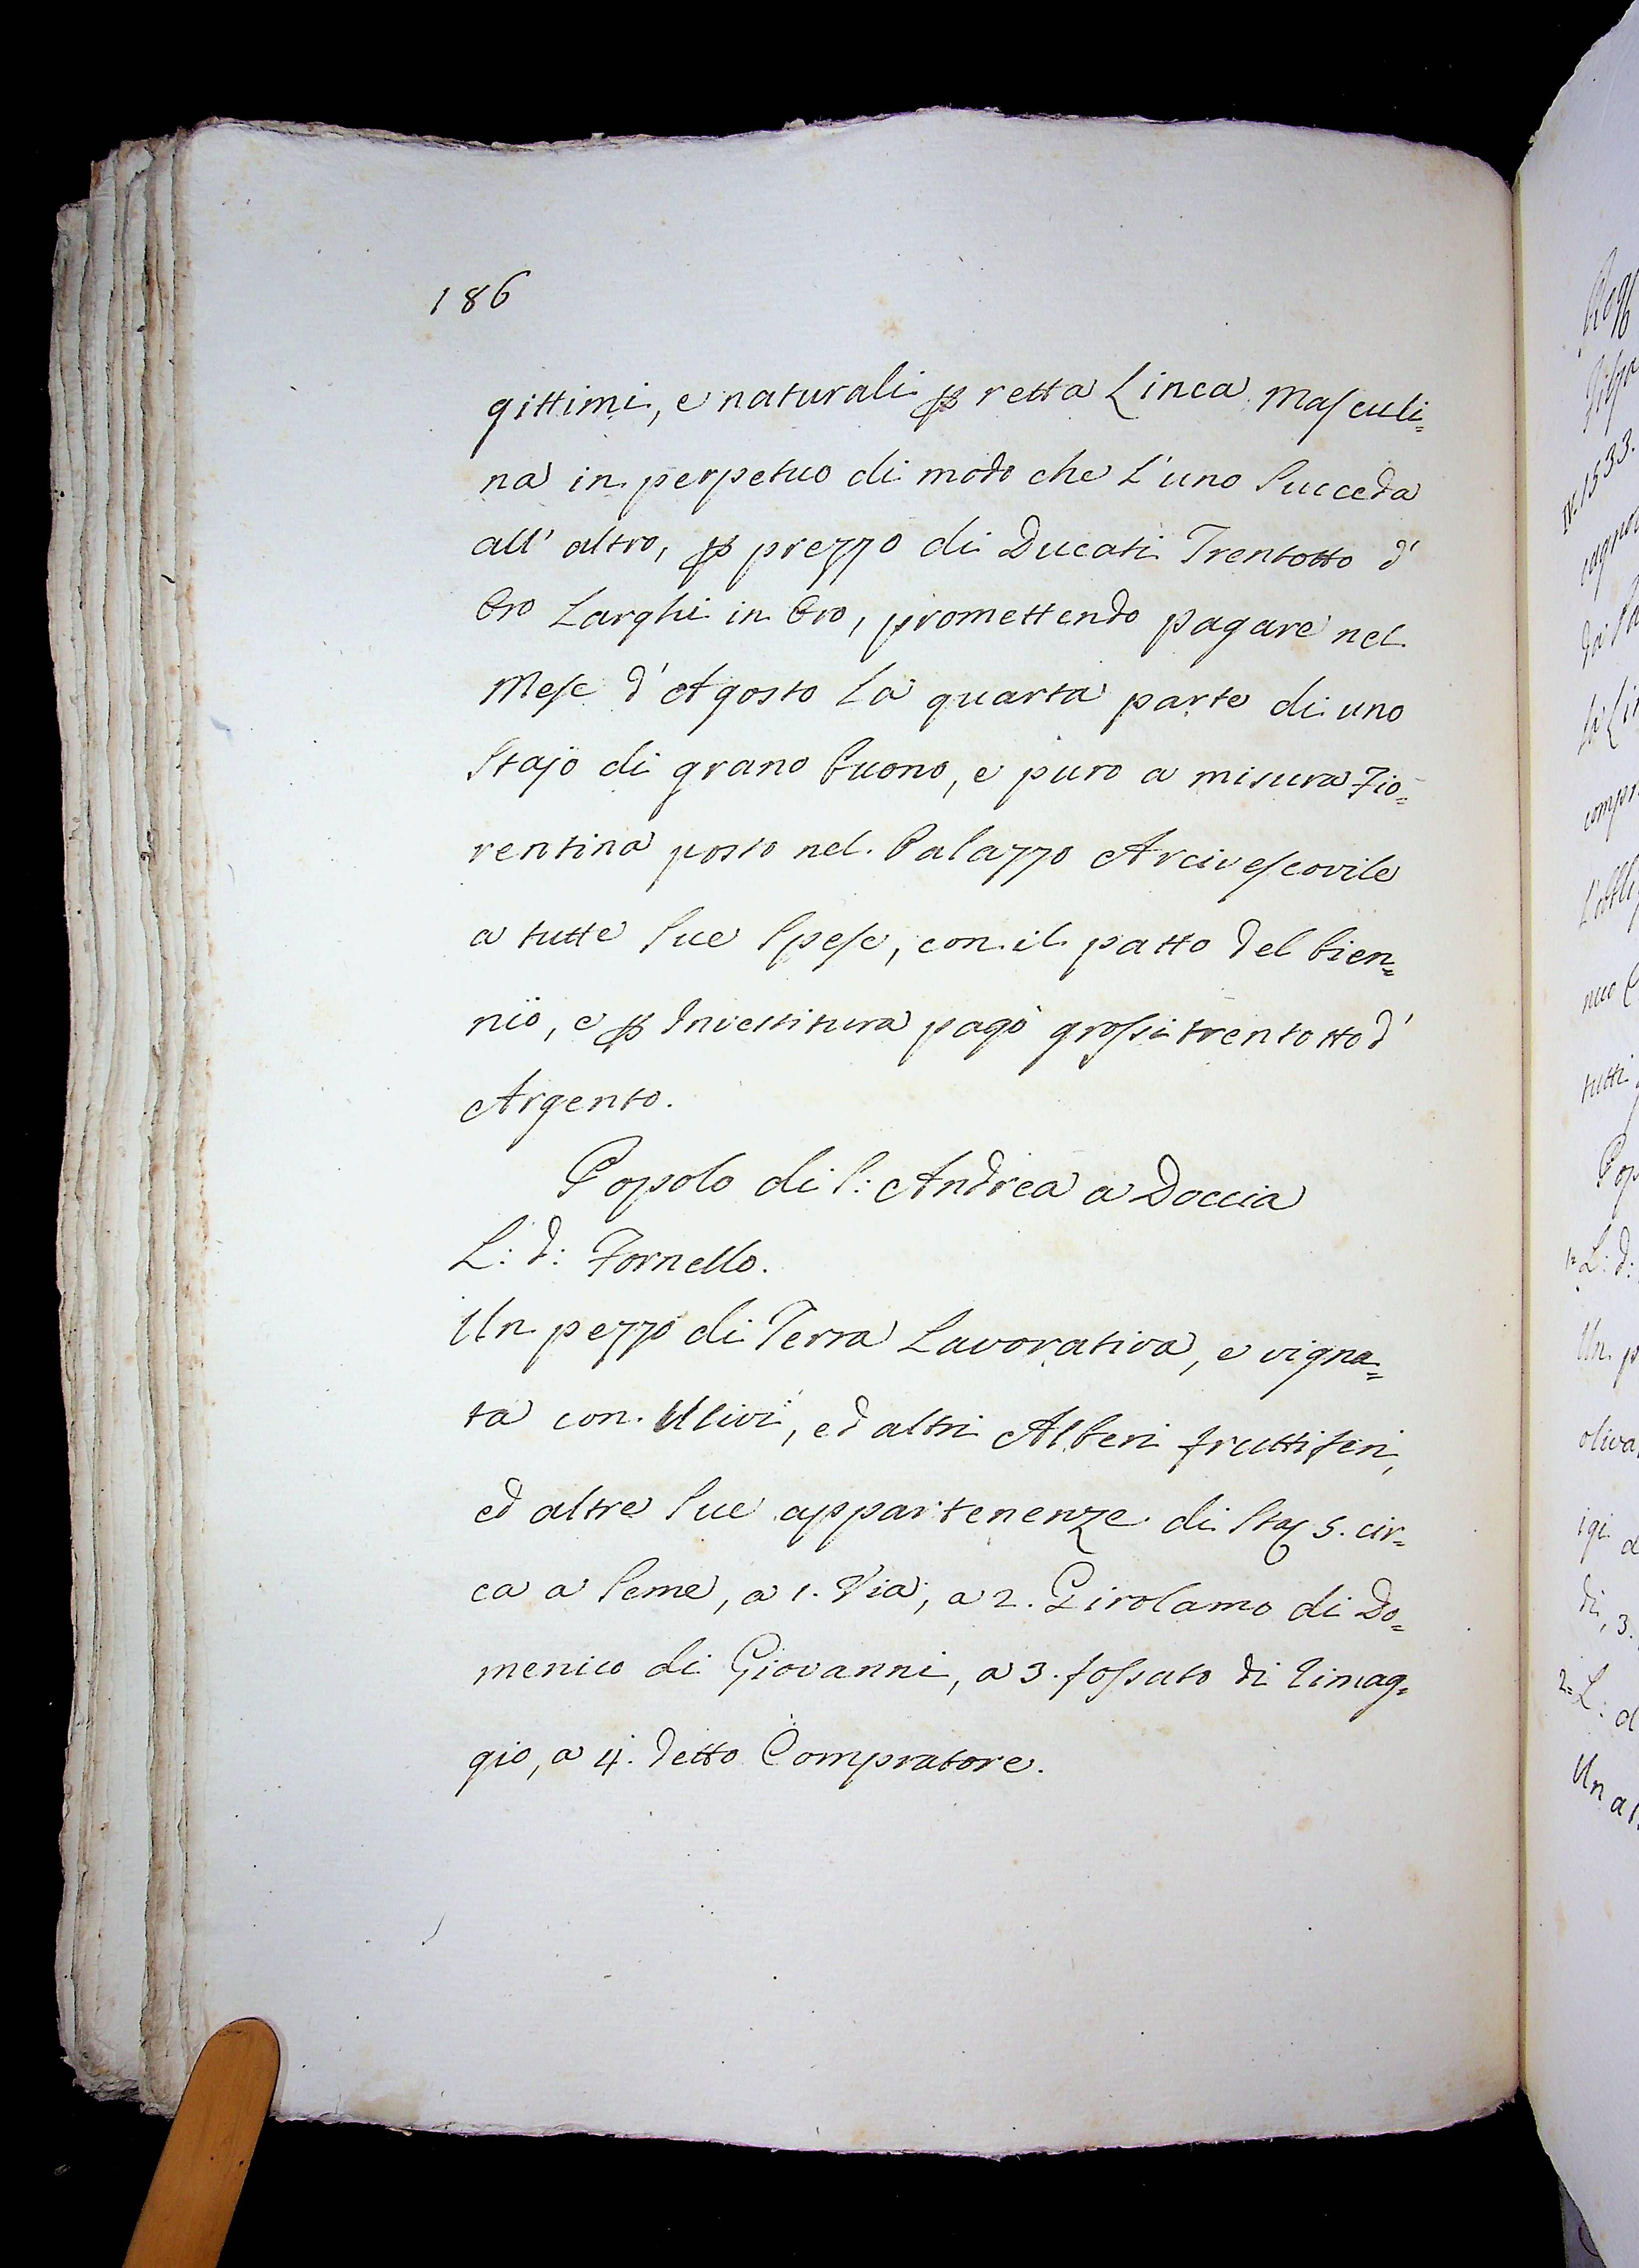 186
gittimi, e naturali ꝑ retta Linea Masculi=
na in perpetuo di modo che l'uno Succeda
all' altro, ꝑ prezzo di Ducati Trentotto d'
Oro Larghi in Oro, promettendo pagare nel
Mese d'Agosto la quarta parte di uno
Stajo di grano buono, e puro a misura Fio=
rentina posto nel Palazzo Arcivescovile
a tutte Sue Spese, con il patto del bien=
nio, e ꝑ Investitura pagò grossi trentotto d'
Argento.
Popolo di S: Andrea a Doccia
L: d: Fornello.
Un pezzo di Terra Lavorativa, e vigna=
ta con Ulivi, ed altri Alberi fruttiferi,
ed altre Sue appartenenze di Staj 5. cir=
ca a Seme, a 1. Via, a 2. Girolamo di Do=
menico di Giovanni, a 3. fossato di Rimag=
gio, a 4. detto Compratore.
1533.
compr
tutti
1= L: d:
Un p
oliva
igi d
di, 3.
2= L: d
Un a 1.